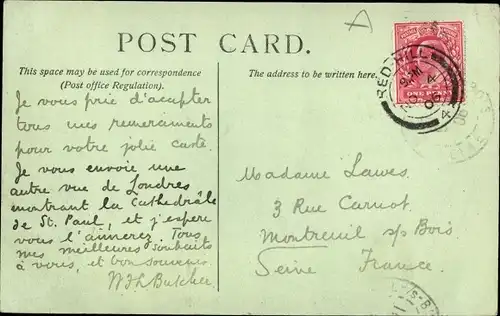 POST CARD.
This space may be used for correspondence
(Post office Regulation).
The address to be written here.
Je vous prie d'accepter
tous mes remerciments
pour votre jolie carte.
Je vous envoie une
autre vue de Londres
montrant la Cathedrâle
de St. Paul, et j'espere
vous l'aimerez. Tous
mes meilleures souhaits
à vous, et bon souvenir
W H L Butcher
Madame Lawes
3 Rue Carnot
Montreuil s/s Bois
Seine France.
REDHILL
ONE PENNY